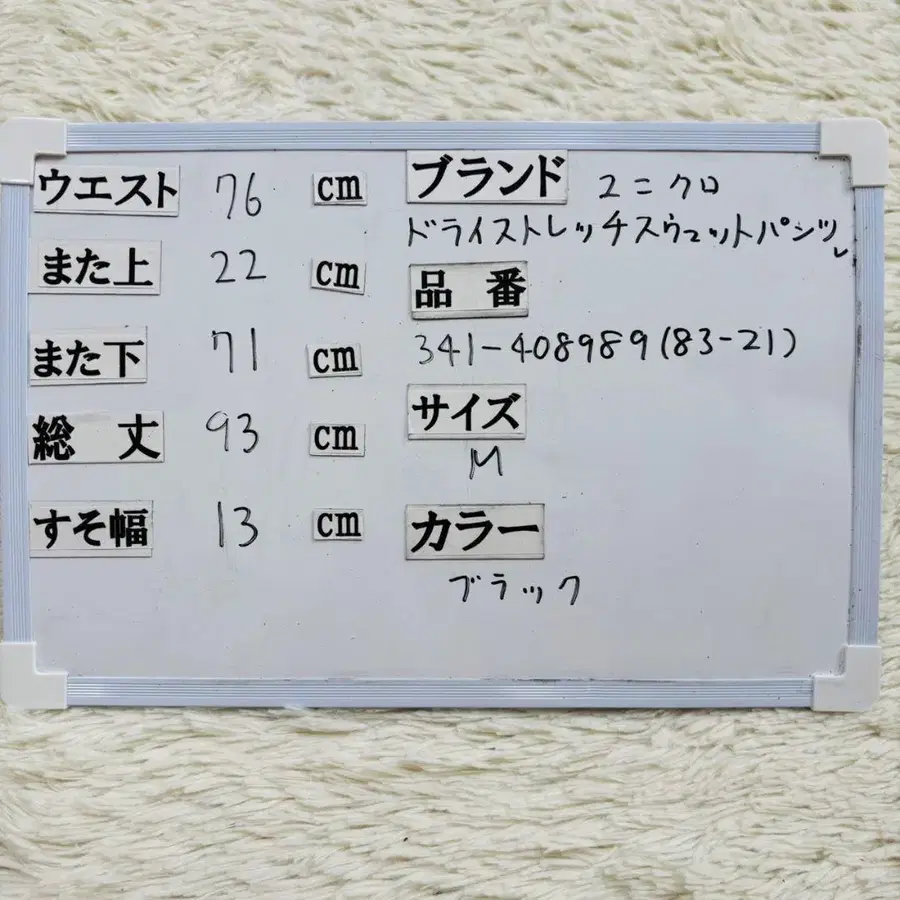 ウエスト 76 cm
また上 22 cm
また下 71 cm
総丈 93 cm
すそ幅 13 cm
ブランド ユニクロ
ドライストレッチスウェットパンツ
品番
341-408989(83-21)
サイズ
M
カラー
ブラック